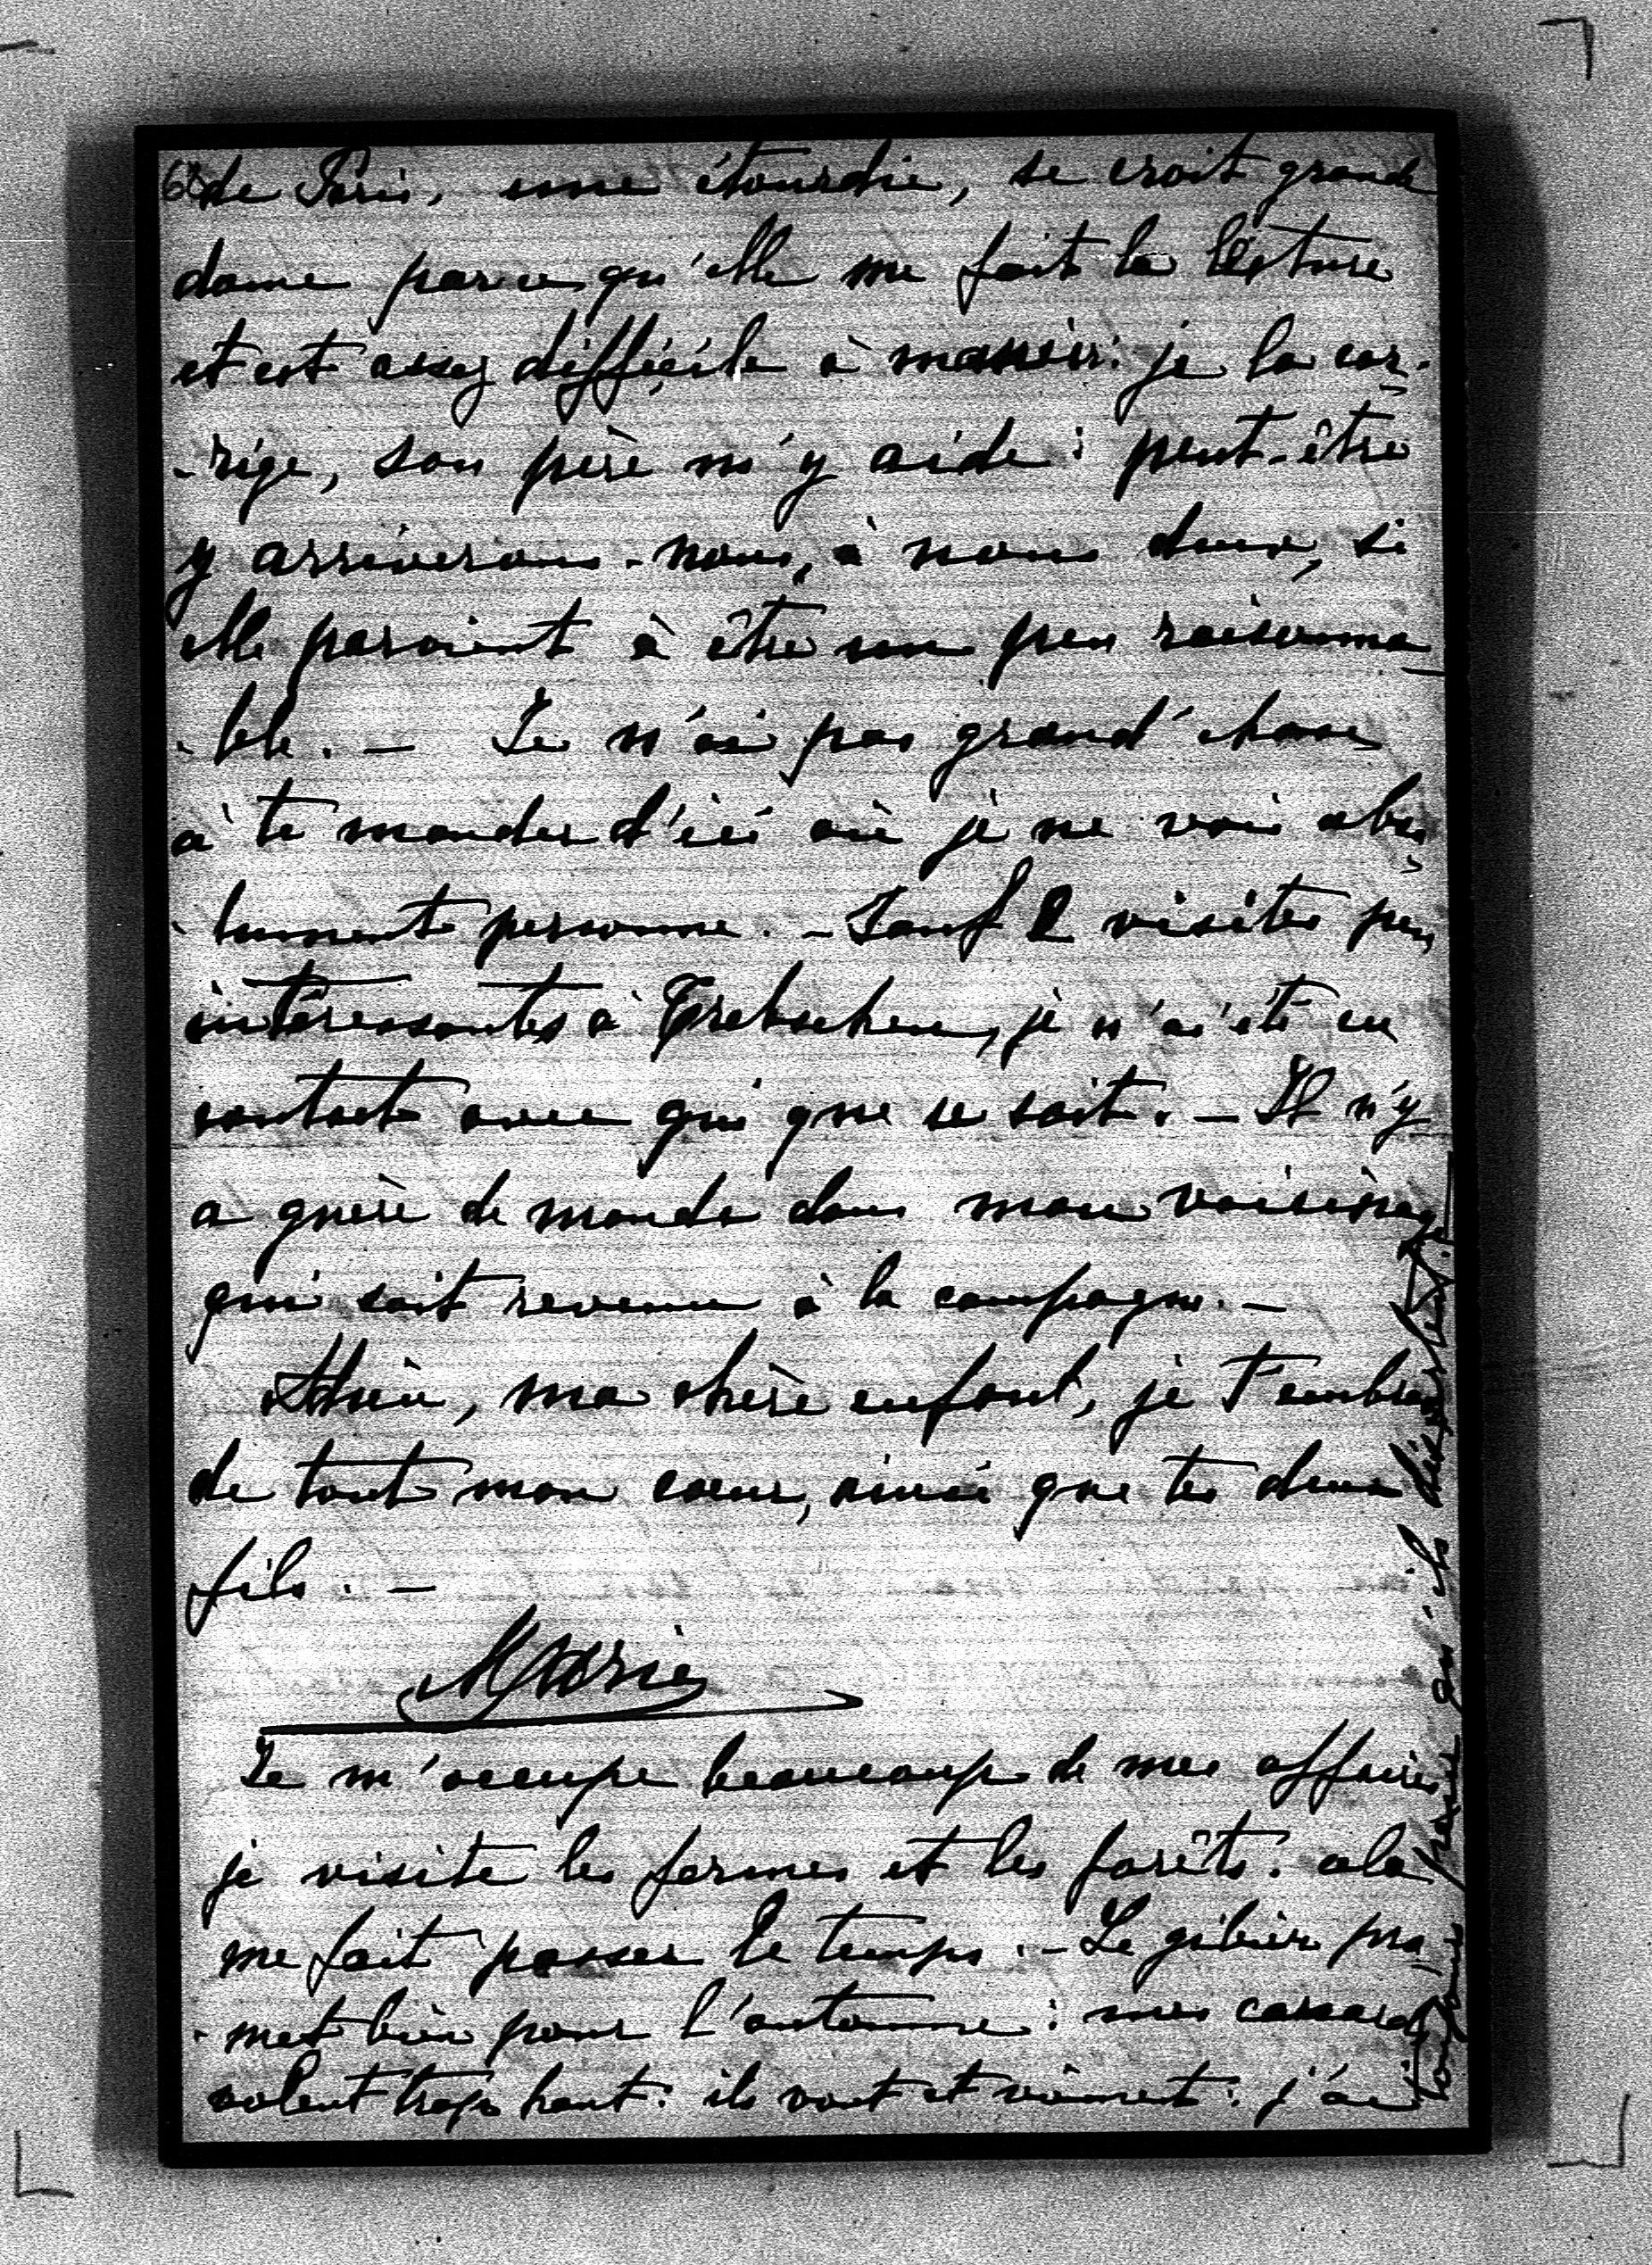 68
de Paris, une étourdie, se croit grande
dame parce qu'elle me fait la lecture
et est assez difficile à manier: je la cor-
-rige, son père m'y aide: peut-être
y arriverons-nous, à nous deux, si
elle parvient à être un peu raisonna-
-ble. — Je n'ai pas grand'chose
à te mander d'ici où je ne vois abso-
-lument personne. — Sauf 2 visites peu
intéressantes à Trebschen, je n'ai été en
contact avec qui que ce soit. — Il n'y
a guère de monde dans mon voisinage
qui soit revenu à la campagne. —
Adieu, ma chère enfant, je t'embrasse
de tout mon cœur, ainsi que tes deux
fils. —
Marie
Je m'occupe beaucoup de mes affaires
je visite les fermes et les forêts: cela
me fait passer le temps. — Le gibier pro-
-met bien pour l'automne: mes canards
volent trop haut: ils vont et viennent: j'ai
toujours peur qu'ils désertent. —